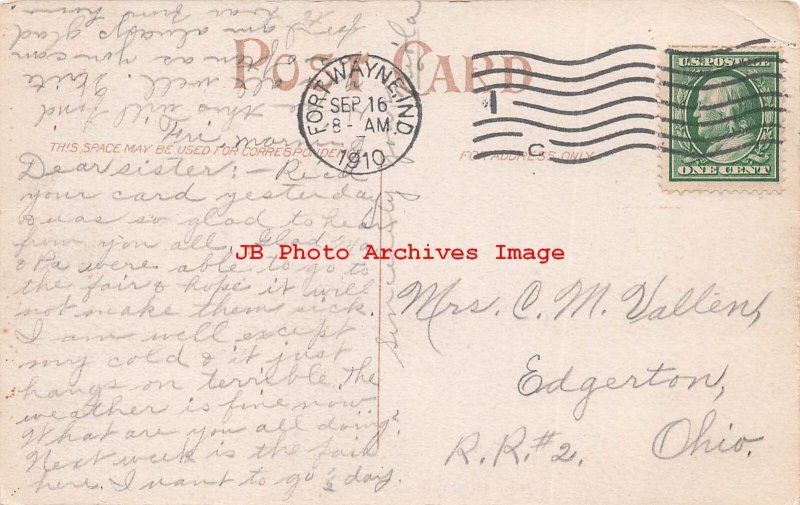 POST CARD
FORT WAYNE, IND.
SEP 16
8- AM
1910
1
C
U.S. POSTAGE
ONE CENT
THIS SPACE MAY BE USED FOR CORRESPONDENCE
FOR ADDRESS ONLY
JB Photo Archives Image
Fri. morning
Dear sister; - Rec'd
your card yesterday
& was so glad to hear
from you all. Glad Ma
& Pa were able to go to
the fair & hope it will
not make them sick.
I am well except
my cold & it just
hangs on terrible. The
weather is fine now
What are you all doing?
Next week is the fair
here. I want to go 2 day.
this will find
all well. Write
as you can
for I am always glad
to hear from home
Mrs. C. M. Vallen,
Edgerton,
R.R. #2. Ohio.